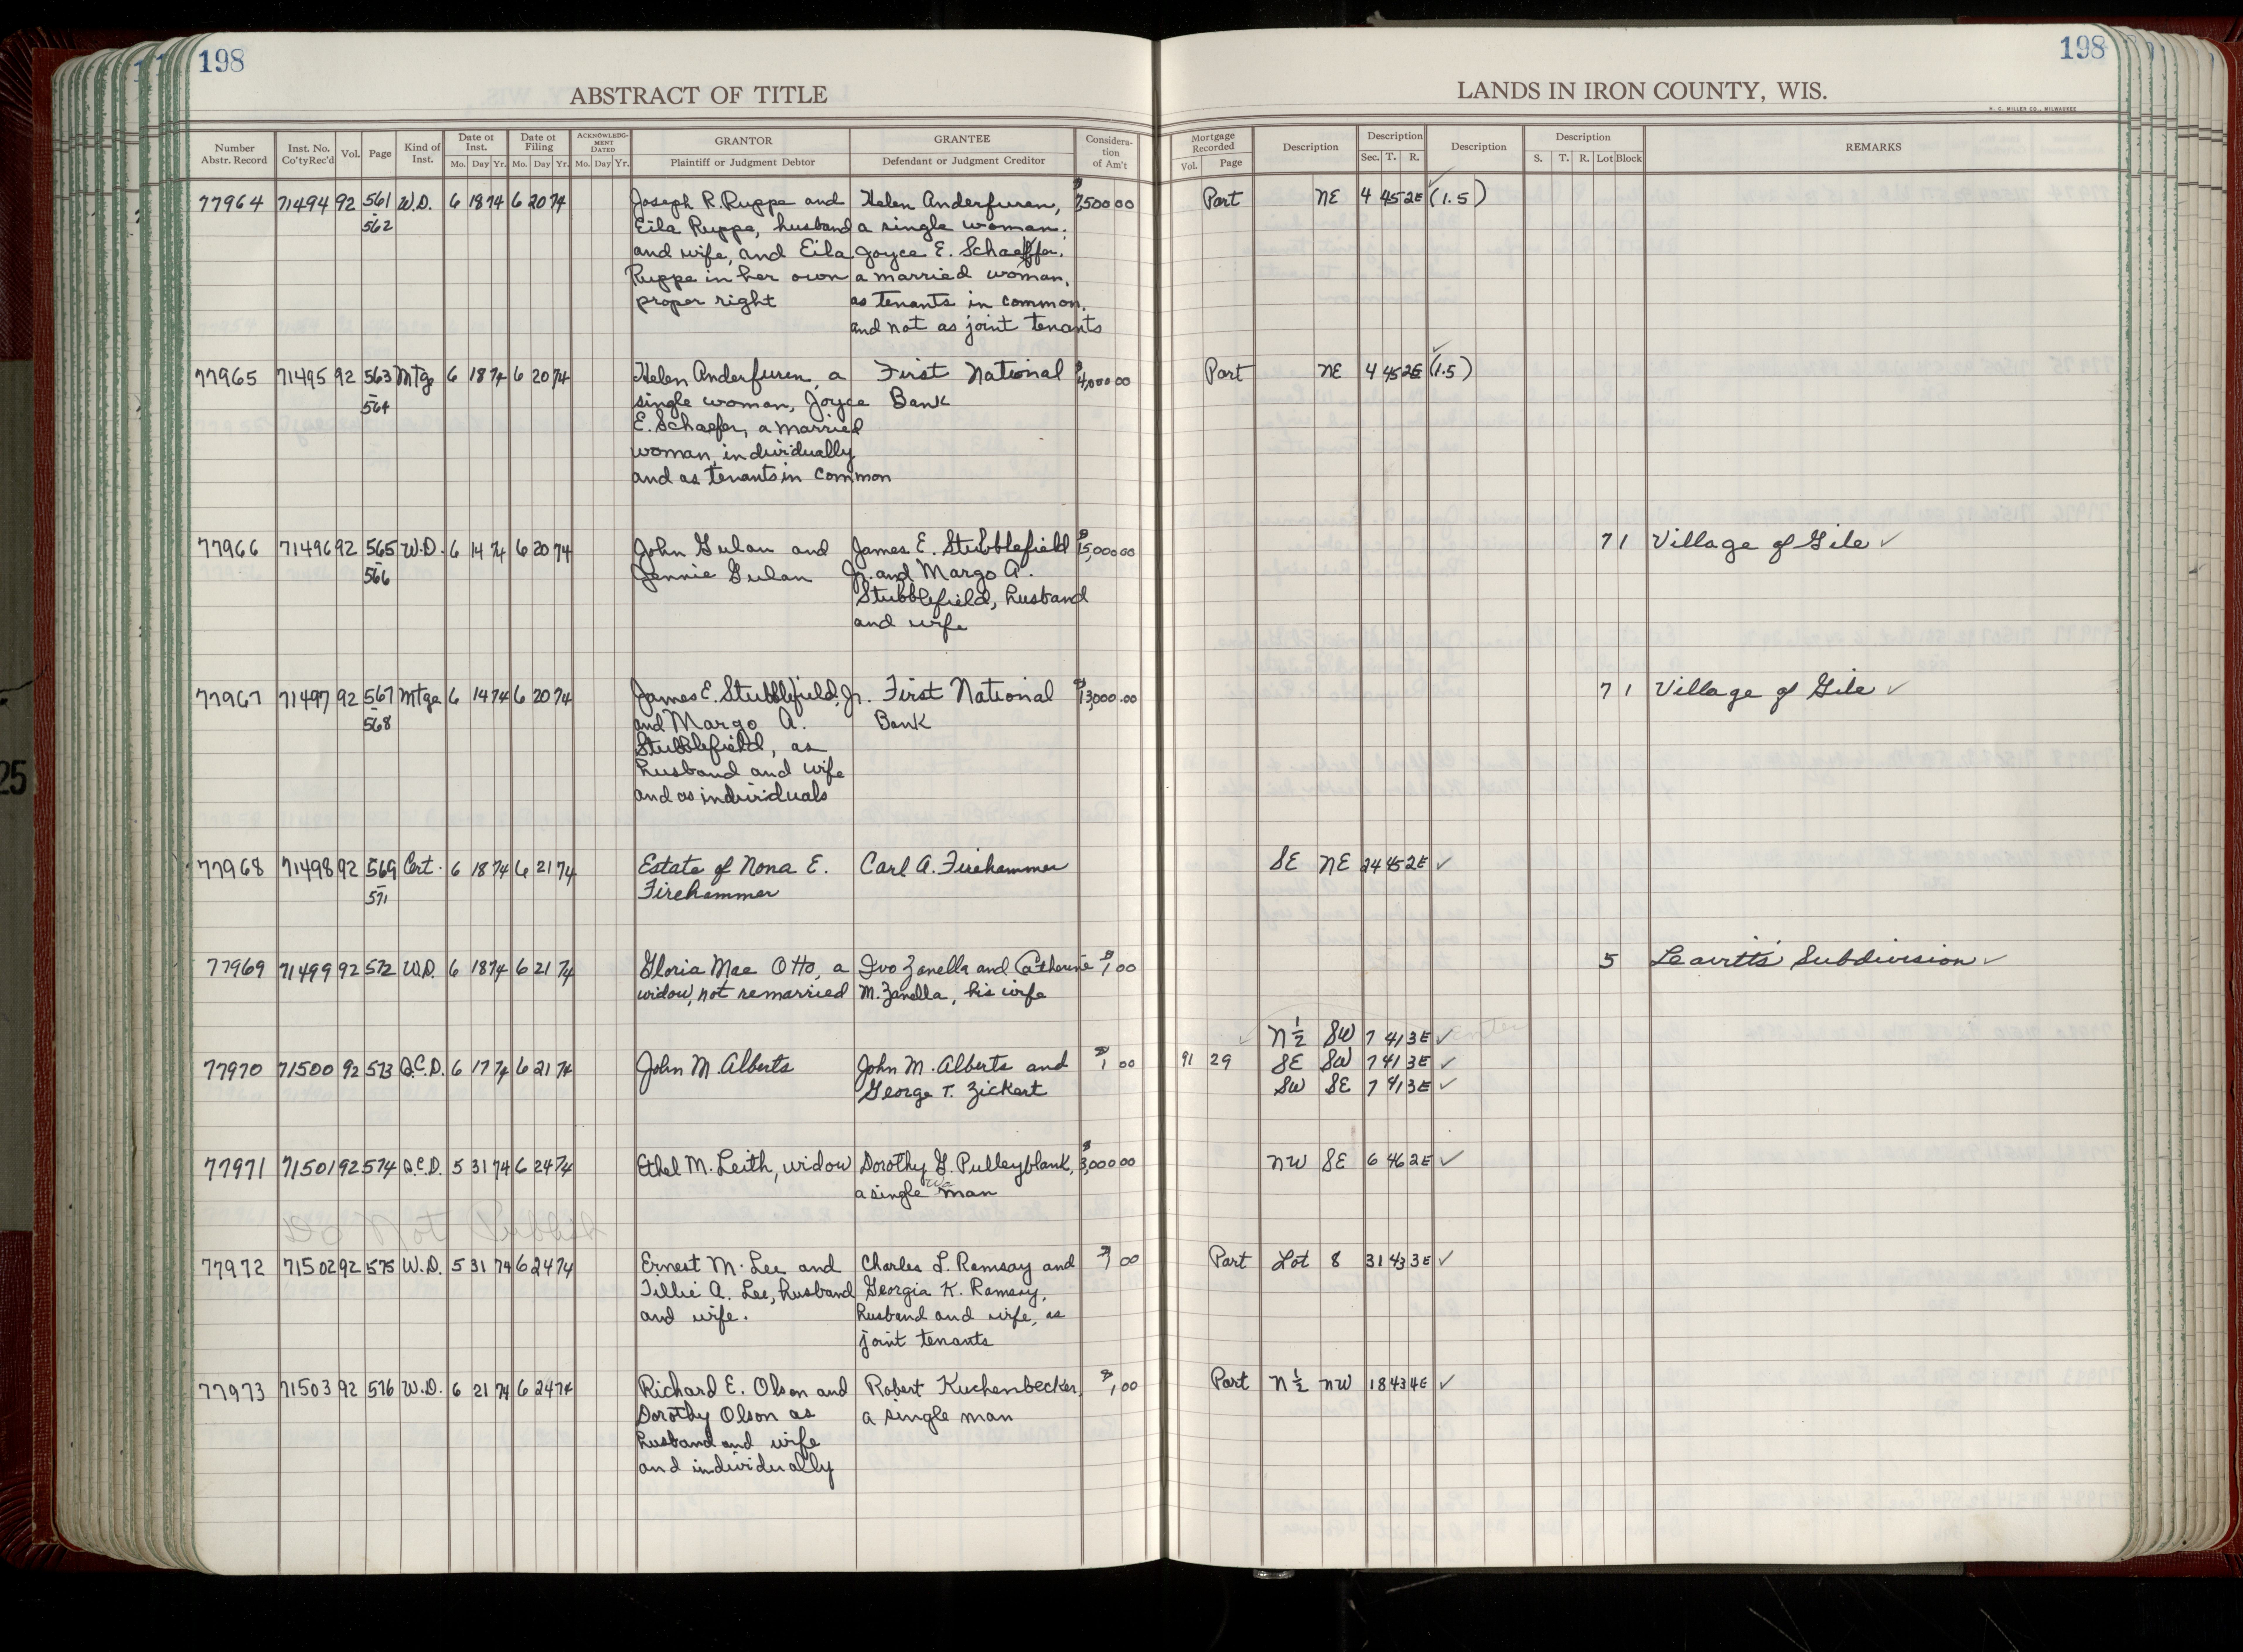 198
198
ABSTRACT OF TITLE
LANDS IN IRON COUNTY, WIS.
H. C. MILLER CO., MILWAUKEE
Number Abstr. Record | Inst. No. Co'ty Rec'd | Vol. | Page | Kind of Inst. | Date of Inst. Mo. Day Yr. | Date of Filing Mo. Day Yr. | ACKNOWLEDGMENT DATED Mo. Day Yr. | GRANTOR Plaintiff or Judgment Debtor | GRANTEE Defendant or Judgment Creditor | Consideration of Am't | Mortgage Recorded Vol. Page | Description | Description Sec. T. R. | Description | Description S. T. R. Lot Block | REMARKS
77964 71494 92 561 W.D. 6 18 74 6 20 74 Joseph R. Ruppe and Helen Anderfuren, $7,500 00 Part NE 4 45 2E (1.5)
562 Eila Ruppe, husband a single woman,
and wife, and Eila Joyce E. Schaefer,
Ruppe in her own a married woman,
proper right as tenants in common,
and not as joint tenants
77965 71495 92 563 Mtge 6 18 74 6 20 74 Helen Anderfuren, a First National $4,000 00 Part NE 4 45 2E (1.5)
564 single woman, Joyce Bank
E. Schaefer, a married
woman, individually
and as tenants in common
77966 71496 92 565 W.D. 6 14 74 6 20 74 John Gulan and James E. Stubblefield $15,000 00 7 1 Village of Gile ✓
566 Jennie Gulan Jr. and Margo A.
Stubblefield, husband
and wife
77967 71497 92 567 Mtge 6 14 74 6 20 74 James E. Stubblefield, Jr. First National $13,000.00 7 1 Village of Gile ✓
568 and Margo A. Bank
Stubblefield, as
husband and wife
and as individuals
77968 71498 92 569 Cert. 6 18 74 6 21 74 Estate of Nona E. Carl A. Firehammer SE NE 24 45 2E ✓
571 Firehammer
77969 71499 92 572 W.D. 6 18 74 6 21 74 Gloria Mae Otto, a Ivo Zanella and Catherine $1 00 5 Leavitt's Subdivision ✓
widow, not remarried M. Zanella, his wife
N½ SW 7 41 3E ✓
77970 71500 92 573 Q.C.D. 6 17 74 6 21 74 John M. Alberts John M. Alberts and $1 00 91 29 SE SW 7 41 3E ✓
George T. Zickert SW SE 7 41 3E ✓
77971 71501 92 574 Q.C.D. 5 31 74 6 24 74 Ethel M. Leith, widow Dorothy G. Pulleyblank, $3,000 00 NW SE 6 46 2E ✓
a single woman
77972 71502 92 575 W.D. 5 31 74 6 24 74 Ernest M. Lee and Charles L. Ramsay and $1 00 Part Lot 8 31 43 3E ✓
Tillie A. Lee, husband Georgia K. Ramsay,
and wife. husband and wife, as
joint tenants
77973 71503 92 576 W.D. 6 21 74 6 24 74 Richard E. Olson and Robert Kuchenbecker, $1,00 Part N½ NW 18 43 4E ✓
Dorothy Olson as a single man
husband and wife
and individually
25